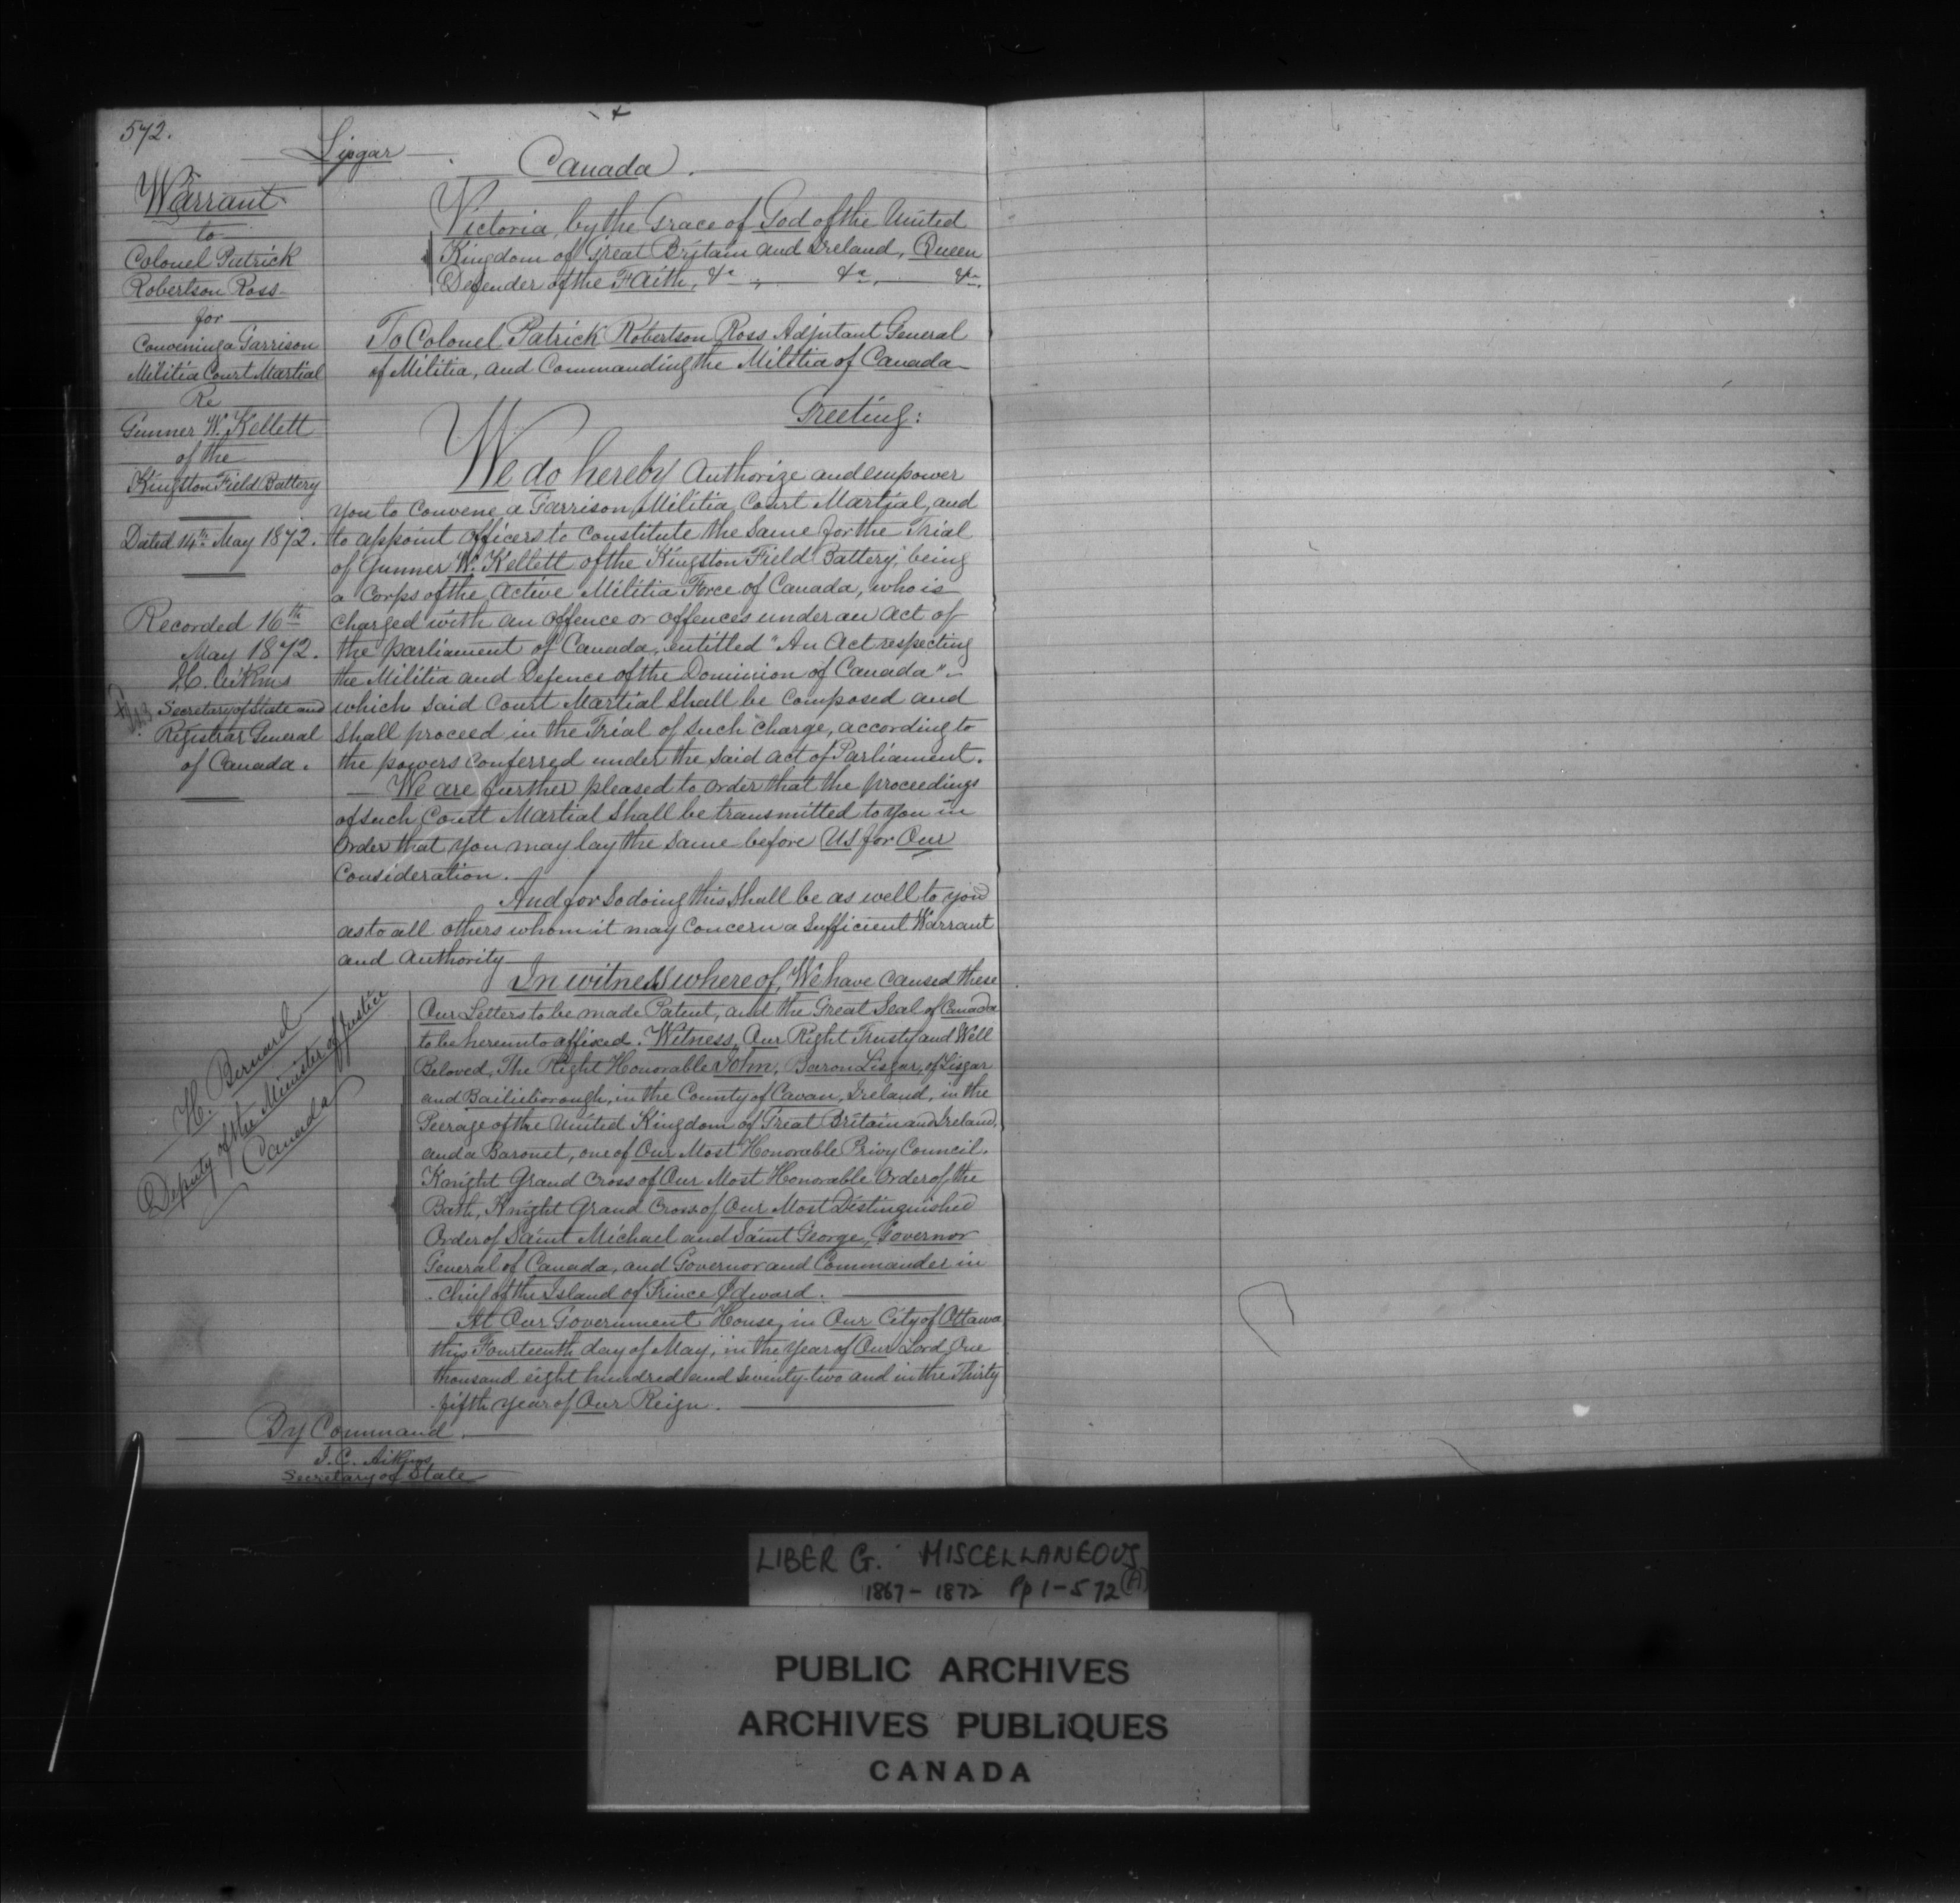 572.
Lisgar
Canada.
Warrant
to
Colonel Patrick
Robertson Ross
for
Convening a Garrison
Militia Court Martial
Re
Gunner W. Kellett
of the
Kingston Field Battery
Dated 14th May 1872.
Recorded 16th
May 1872.
Aikins
Secretary of State and
Registrar General
of Canada.
Victoria, by the Grace of God of the United
Kingdom of Great Britain and Ireland, Queen
Defender of the Faith, &c., &c., &c.
To Colonel Patrick Robertson Ross Adjutant General
of Militia, and Commanding the Militia of Canada—
Greeting:
We do hereby Authorize and empower
you to Convene a Garrison Militia Court Martial, and
to appoint Officers to Constitute the Same for the Trial
of Gunner W. Kellett of the Kingston Field Battery, being
a Corps of the Active Militia Force of Canada, who is
charged with an offence or offences under an Act of
the parliament of Canada, entitled "An Act respecting
the Militia and Defence of the Dominion of Canada".
which Said Court Martial Shall be Composed and
Shall proceed in the Trial of Such Charge, according to
the powers Conferred under the Said Act of Parliament.
— We are further pleased to order that the proceedings
of such Court Martial Shall be transmitted to you in
Order that you may lay the Same before Us for Our
Consideration.
And for So doing this Shall be as well to you
as to all others whom it may Concern a Sufficient Warrant
and Authority—
In witness where of, We have Caused these
Our Letters to be made Patent, and the Great Seal of Canada
to be hereunto affixed. Witness, Our Right Trusty and Well
Beloved, The Right Honorable John, Baron Lisgar, of Lisgar
and Bailieborough, in the County of Cavan, Ireland, in the
Peerage of the United Kingdom of Great Britain and Ireland,
and a Baronet, one of Our Most Honorable Privy Council.
Knight Grand Cross of Our Most Honorable Order of the
Bath, Knight Grand Cross of Our Most Distinguished
Order of Saint Michael and Saint George, Governor
General of Canada, and Governor and Commander in
Chief of the Island of Prince Edward.
At Our Government House, in Our City of Ottawa
this Fourteenth day of May, in the Year of Our Lord, One
thousand eight hundred and Seventy-two and in the Thirty
fifth year of Our Reign.
H. Bernard
Deputy of the Minister of Justice
Canada
By Command.
J. C. Aikins
Secretary of State
LIBER G. MISCELLANEOUS
1867-1872 Pp 1-572 (A)
PUBLIC ARCHIVES
ARCHIVES PUBLIQUES
CANADA